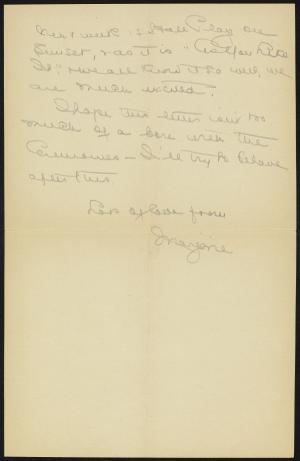 Next week is Hall Play on
Sunset, & as it is "As You Like
It", & we all know it so well, we
are much excited.
I hope this letter isn't too
much of a bore with the
Ceremonies - I'll try to behave
after this.
Lots of love from
Marjorie